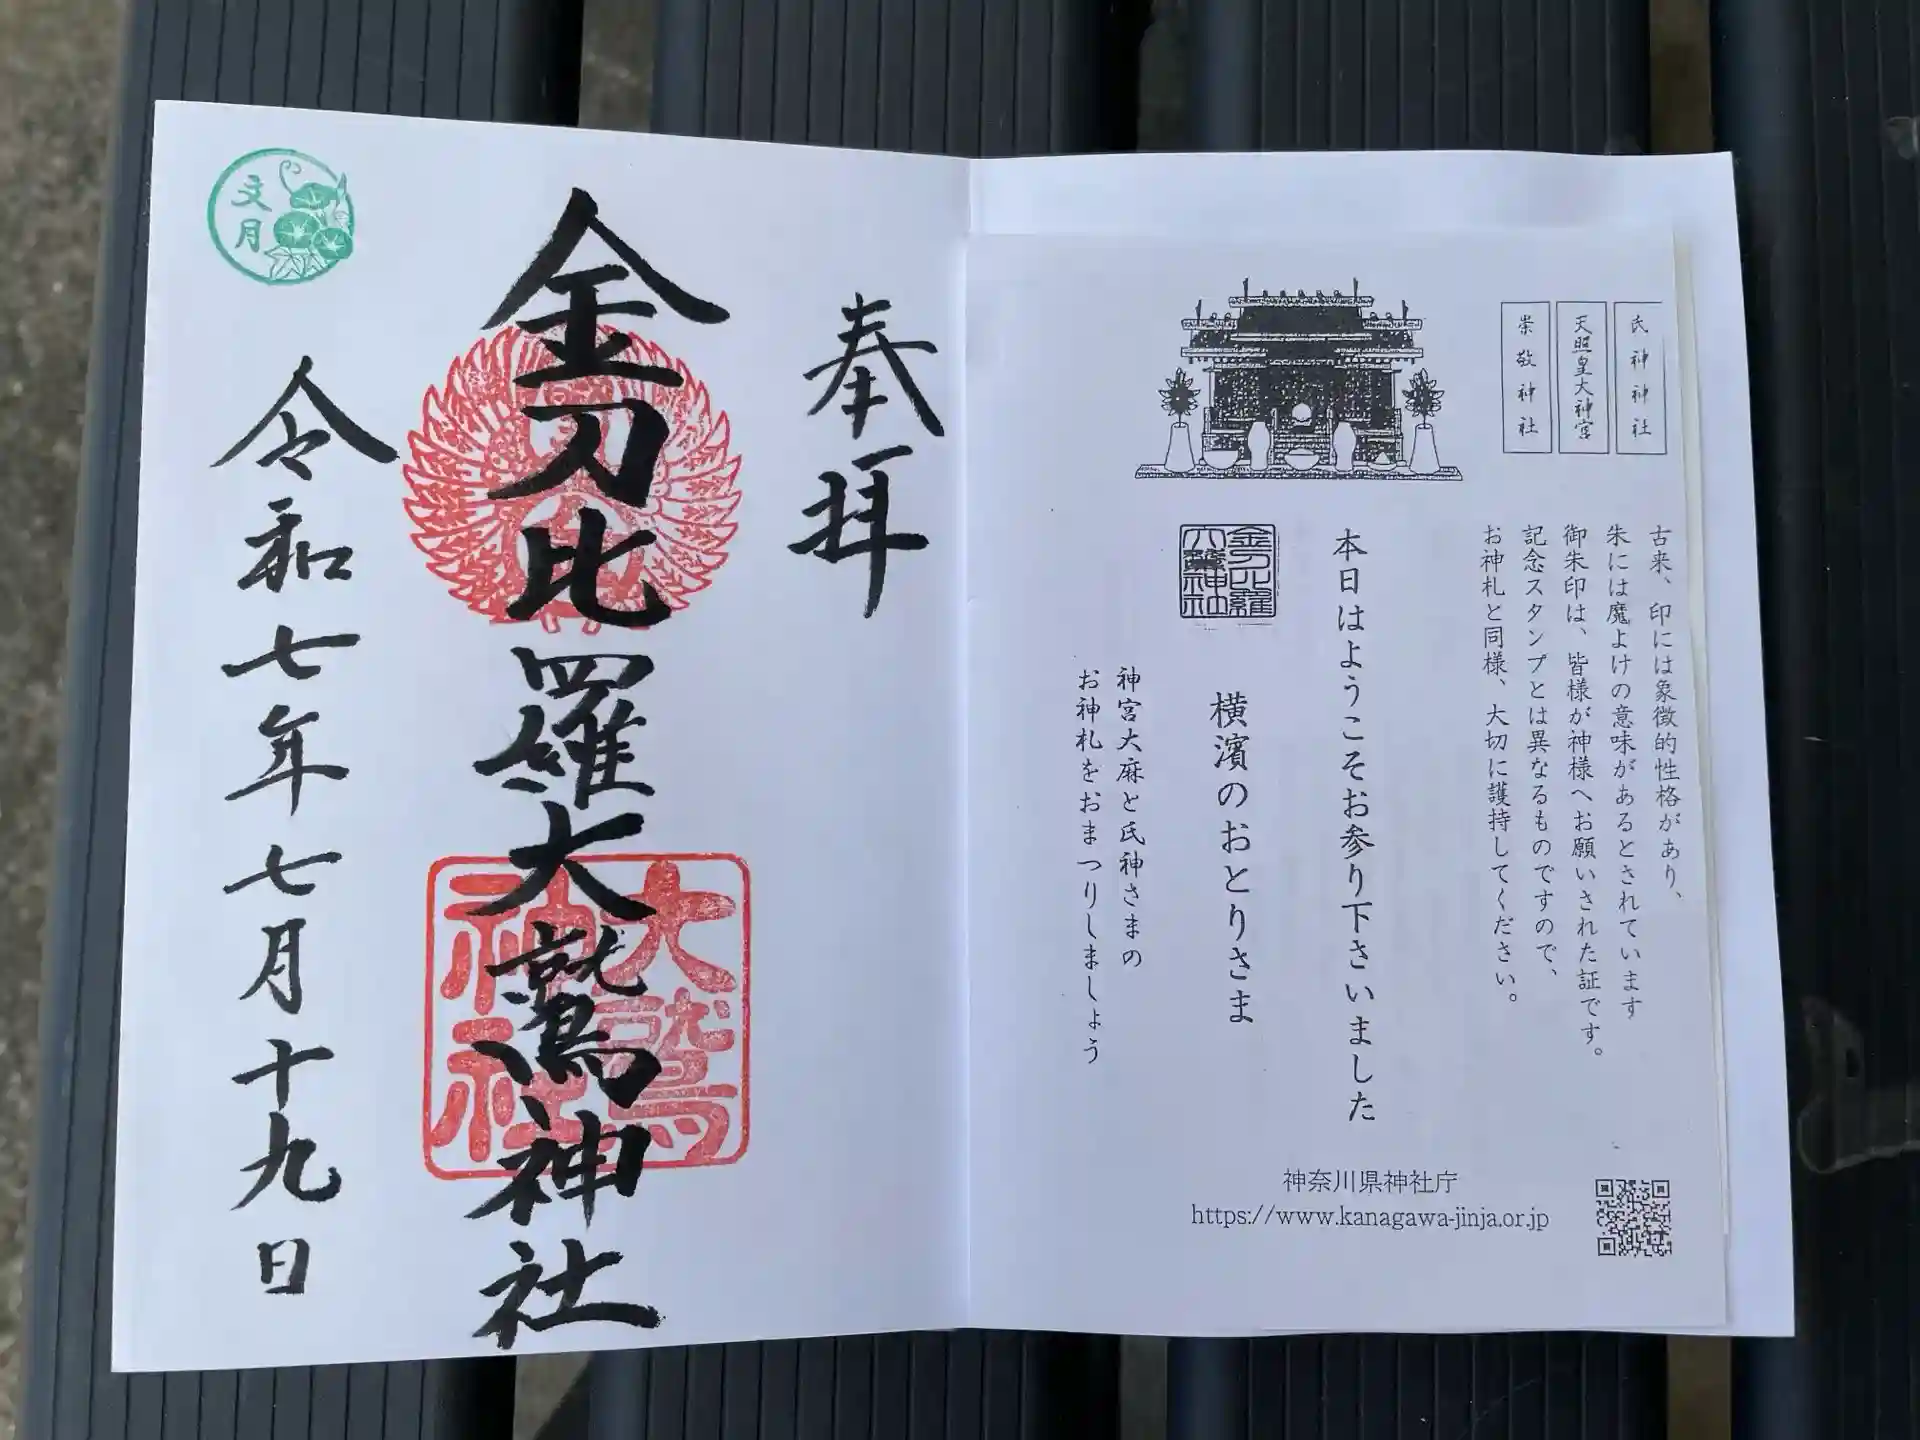 氏神神社
天照皇大神宮
崇敬神社
古来、印には象徴的性格があり、
朱には魔よけの意味があるとされています
御朱印は、皆様が神様へお願いされた証です。
記念スタンプとは異なるものですので、
お神札と同様、大切に護持してください。
本日はようこそお参り下さいました
金刀比羅
大鷲神社
横濱のおとりさま
神宮大麻と氏神さまの
お神札をおまつりしましょう
神奈川県神社庁
https://www.kanagawa-jinja.or.jp
奉拝
金刀比羅大鷲神社
大鷲
神社
令和七年七月十九日
文月